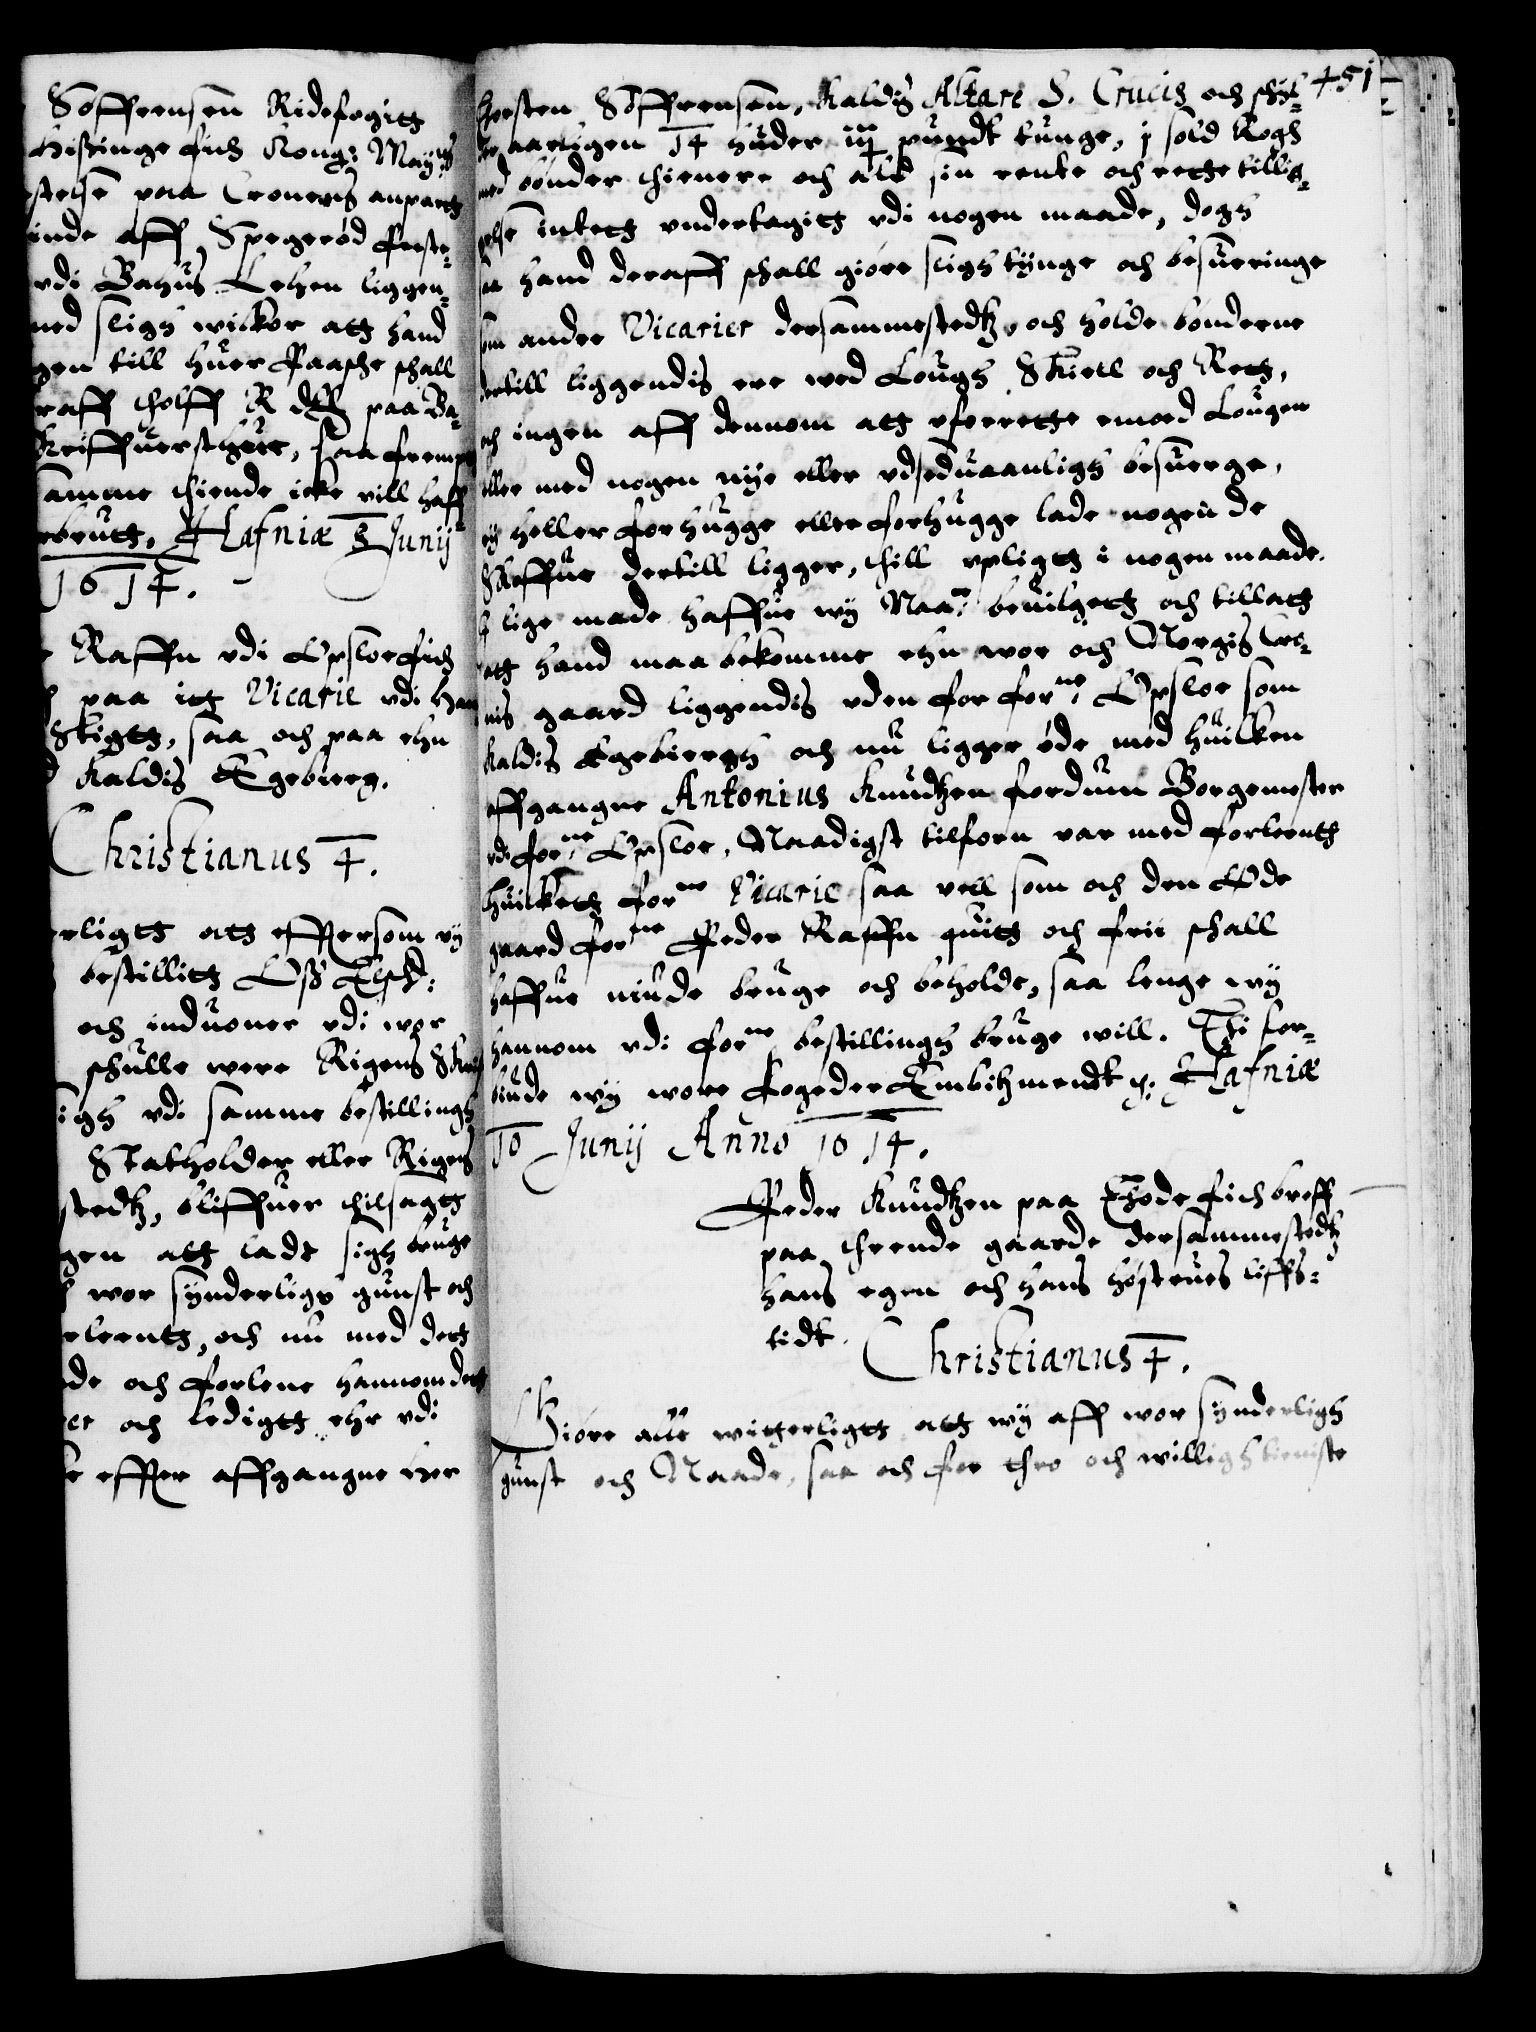 Søffrensen Ridefogitt
Hisinge fich Kong: May:tts
stelse paa Croneris anpartt
inde aff Spegerød
vdi Bahus Lehen liggen-
med sligh wilkor att hand
gen till huer Paasche schall
raff tholff R dlr paa Ba-
Skriffuerschut, saa frempt
samme thiende icke vill haff
brutt. Hafniæ 3 Junij
1614.
Raffn vdi Opsloe fich
paa itt Vicarie vdi Ham
Stigtt, saa och paa ehn
kaldis Egebierg.
Christianus 4.
erligtt att effter som wy
bestillitt Oss Elsch:
och induoner vdi wor
schulle were Rigens
sigh vdi samme bestillingh
Statholder eller Rigens
stedtz, bliffuer tilsagtt
gen att lade sigh bruge
wor synderlige gunst och
rleentt, och nu med dett
de och forlene hannom dett
och ledigtt ehr vdi
effter affgangne her
451
Chresten Søffrensen, kaldis Altare S. Crucis och schyl-
der aarligen 14 huder iiij pundt tunge, j sold Rogh
med bønder thienere och ald sin rente och rette tillig-
gelse intett vndertagitt vdi nogen maade, dogh
saa hand deraff schall giøre sligh tynge och besueringe
som andre Vicarier dersammestedtz, och holde bønderne
dertill liggendis ere wed Lough Skiell och Rett,
och ingen aff dennom att vforrette emod Lougen
eller med nogen nye eller vdseduaanligh besuerge,
ey heller forhugge eller forhugge lade nogen de
Skoffue dertill ligger, thill vpligtt i nogen maade.
lige made haffue wy Naad: beuilgett och tillatt
att hand maa bekomme ehn wor och Norgis Cro-
nis gaard liggendis vden for for:ne Opsloe som
kaldis Egebiergh och nu ligger øde med huilken
affgangne Antonius Knudtzen fordum Borgemester
vdi for:ne Opsloe, Naadigst tilforn var med forleentt
huilkett for:ne Vicarie saa vell som och den Øde
gaard for:ne Peder Raffn quitt och frii schall
haffue niude bruge och beholde, saa lenge wy
hannom vdi for:ne bestillingh bruge will. Thi for-
biude wy wore fogeder Embitzmendt p: Hafniæ
10 Junij Anno 1614.
Peder Knudtzen paa Thode fich breff
paa thrende gaarde dersammestedtz
hans egen och hans høstrues liffs-
tidt.
Christianus 4.
Giøre alle witterligtt att wy aff wor synderligh
gunst och Naade, saa och for thro och willigh tieniste